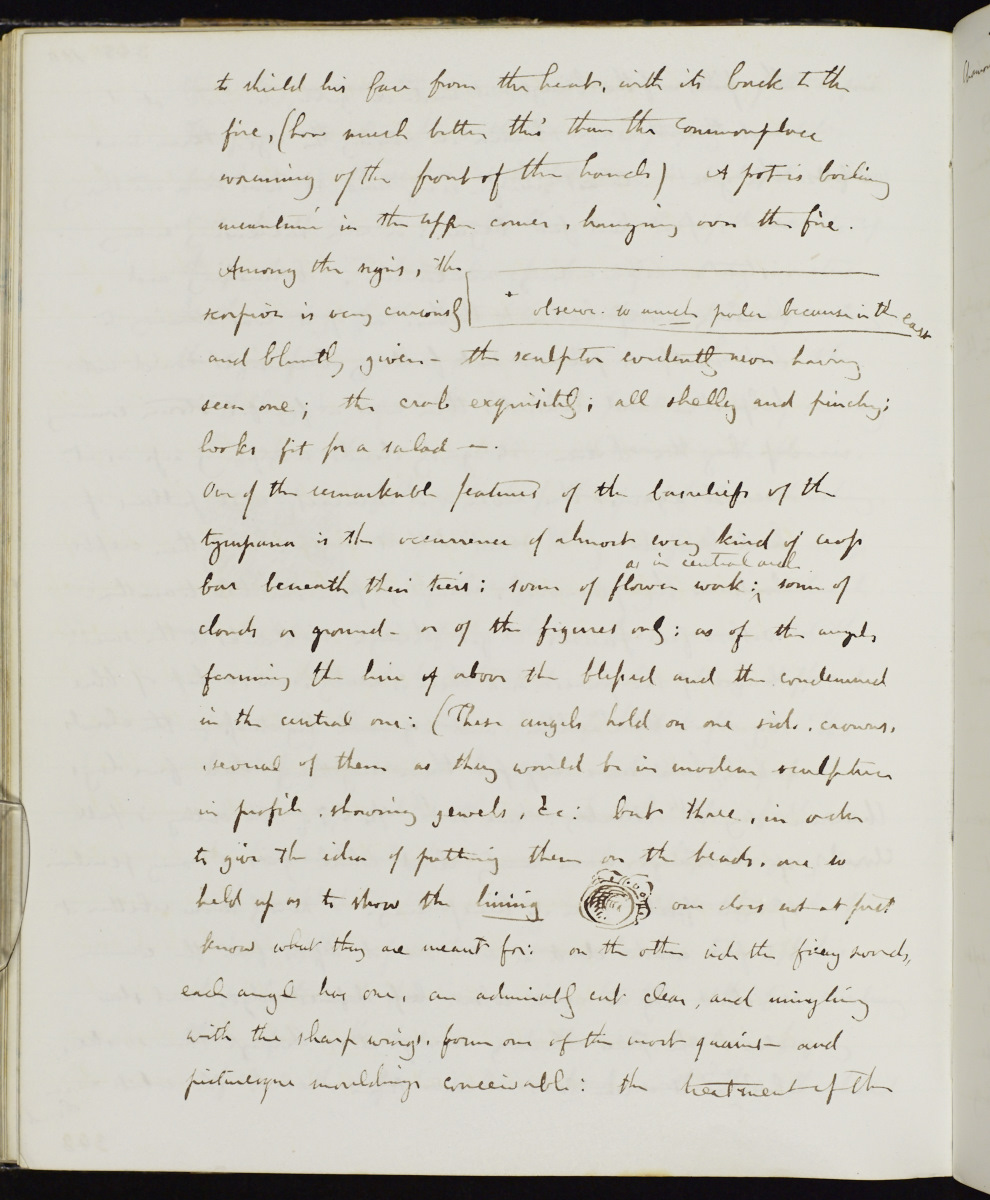 to shield his face from the heat, with its back to the
fire, (how much better this than the commonplace
warming of the front of the hands) A pot is boiling
meantime in the upper corner, hanging over the fire.
Among the signs, the
scorpion is very curiously
* observe. so much paler because in the east
and bluntly given - the sculptor evidently never having
seen one; the crab exquisitely; all shelly and pinchy;
looks fit for a salad -.
One of the remarkable features of the basreliefs of the
tympana is the occurrence of almost every kind of cross
as in central arch
bar beneath their tiers: some of flower work; some of
clouds or ground - or of the figures only: as of the angels
forming the line of above the blessed and the condemned
in the central one: (These angels hold on one side, crowns,
several of them as they would be in modern sculpture
in profile, showing jewels, &c: but three, in order
to give the idea of putting them on the heads, are so
held up as to show the lining one does not at first
know what they are meant for: on the other side the fiery swords,
each angel has one, are admirably cut clear, and mingling
with the sharp wings, form one of the most quaint and
picturesque mouldings conceivable: the treatment of the